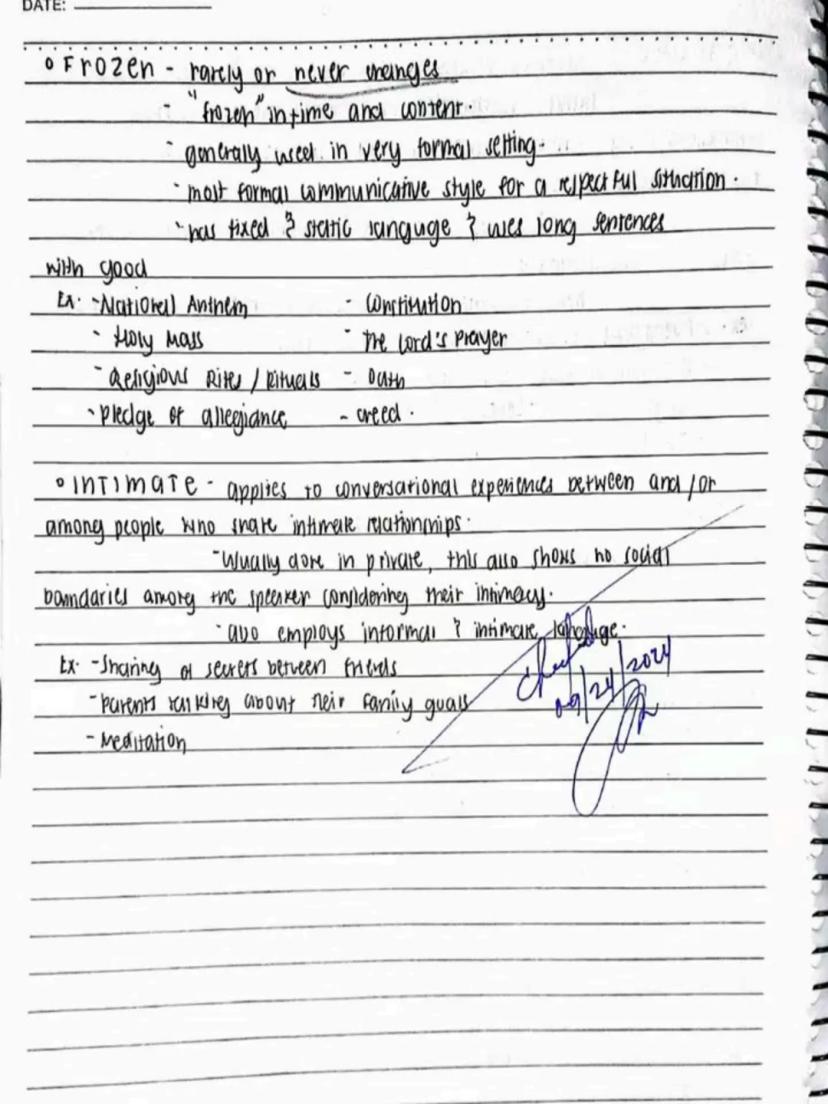 DATE:
Frozen - rarely or never changes
- "frozen" in time and content.
- generally used in very formal setting.
- most formal communicative style for a respectful situation.
- has fixed & static language & uses long sentences
with good
Ex. - National Anthem - Constitution
- Holy Mass - The Lord's Prayer
- Religious Rites / Rituals - Oath
- Pledge of allegiance - creed.
INTIMATE - applies to conversational experiences between and/or
among people who share intimate relationships.
- Usually done in private, this also shows no social
boundaries among the speaker considering their intimacy.
- also employs informal & intimate language.
Ex. - Sharing of secrets between friends
- Parents talking about their family goals
- Meditation
Checked
09/24/2024